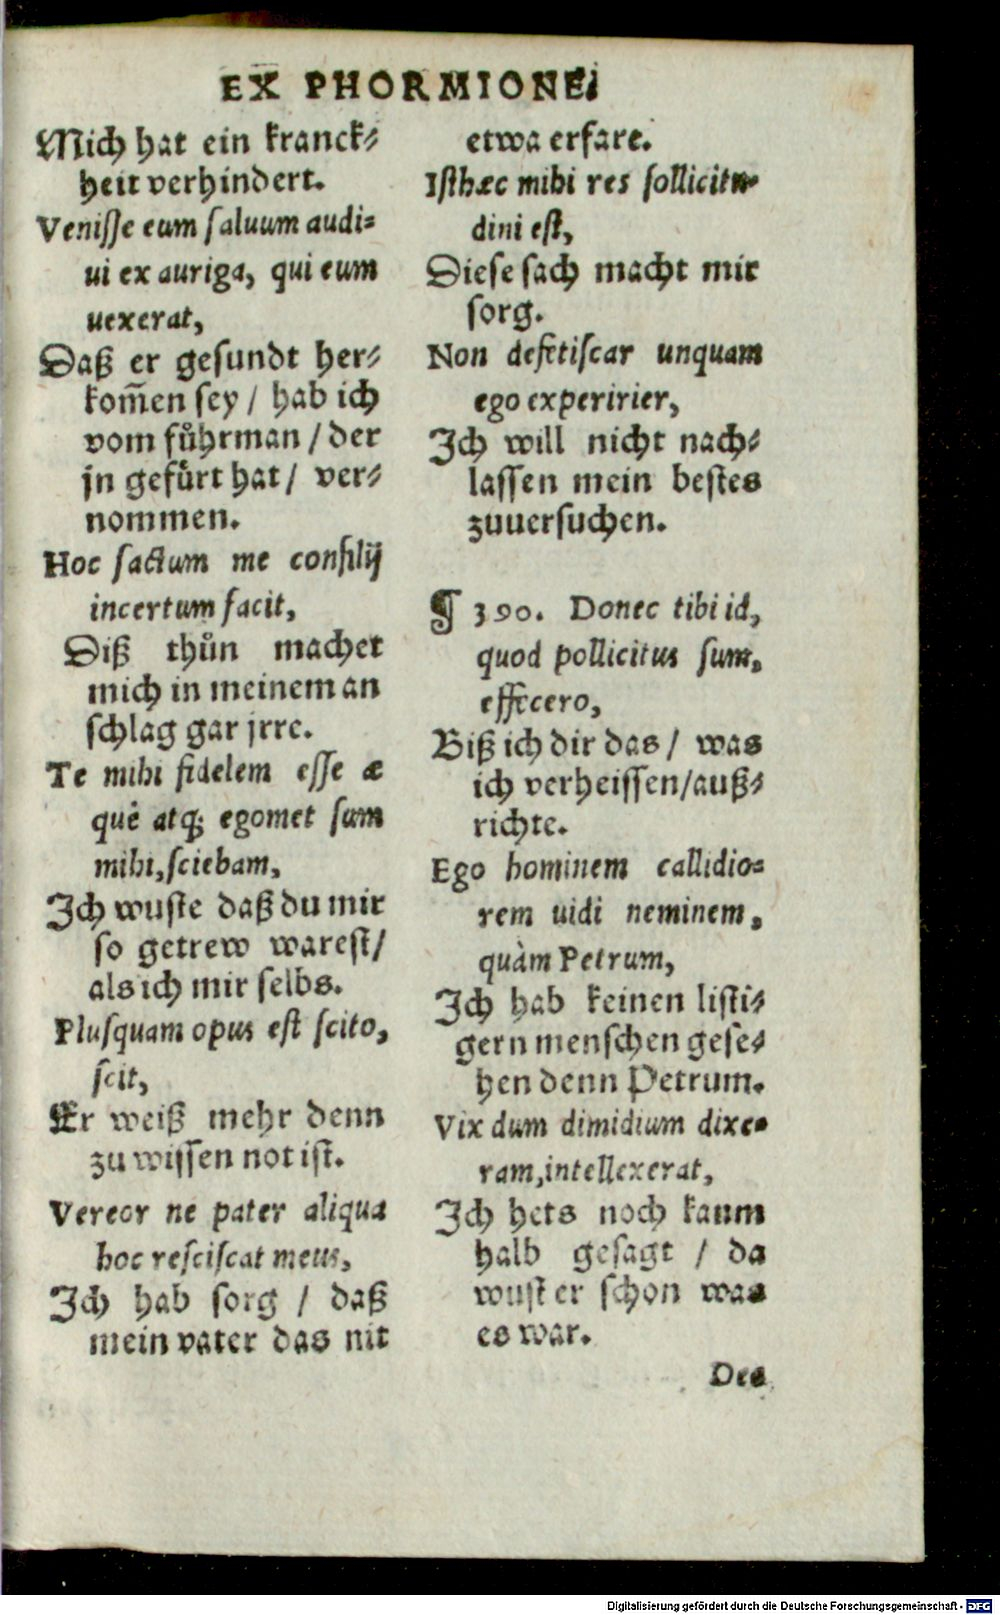 EX PHORMIONE.
Mich hat ein kranck⸗
heit verhindert.
Veniſſe eum ſaluum audi⸗
ui ex auriga, qui eum
uexerat,
Daß er geſundt her⸗
kom̃en ſey / hab ich
vom fuͤhrman / der
jn gefuͤrt hat / ver⸗
nommen.
Hoc factum me conſilij
incertum facit,
Diß thuͦn machet
mich in meinem an
ſchlag gar jrre.
Te mihi fidelem eſſe æ
què atq; egomet ſum
mihi, ſciebam,
Ich wuſte daß du mir
ſo getrew wareſt/
als ich mir ſelbs.
Pluſquam opus eſt ſcito,
ſcit,
Er weiß mehr denn
zu wiſſen not iſt.
Vereor ne pater aliqua
hoc reſciſcat meus,
Ich hab ſorg / daß
mein vater das nit
etwa erfare.
Iſthæc mihi res ſollicitu⸗
dini eſt,
Dieſe ſach macht mir
ſorg.
Non defetiſcar unquam
ego experirier,
Ich will nicht nach⸗
laſſen mein beſtes
zuuerſuchen.
¶ 390. Donec tibi id,
quod pollicitus ſum,
effecero,
Biß ich dir das / was
ich verheiſſen/auß⸗
richte.
Ego hominem callidio⸗
rem uidi neminem,
quàm Petrum,
Ich hab keinen liſti⸗
gern menſchen geſe⸗
hen denn Petrum.
Vix dum dimidium dixe⸗
ram, intellexerat,
Ich hets noch kaum
halb geſagt / da
wuſt er ſchon was
es war.
Des
Digitalisierung gefördert durch die Deutsche Forschungsgemeinschaft - DFG